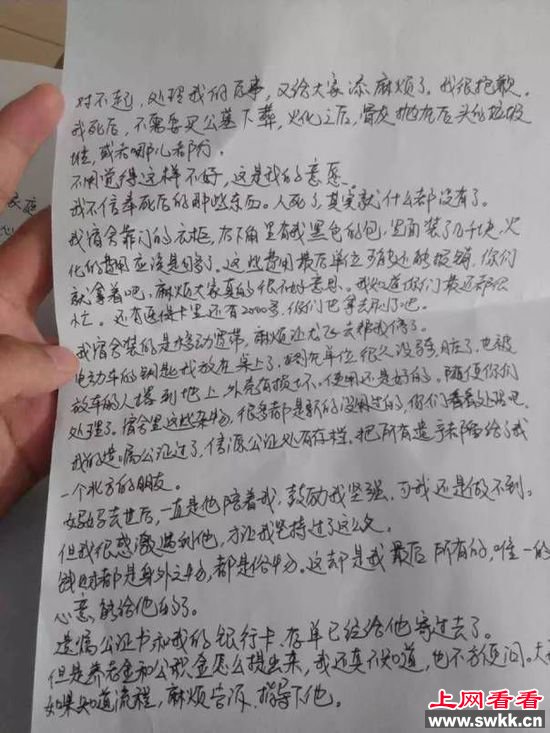 对不起，处理我的后事，又给大家添麻烦了。我很抱歉。
我死后，不需要买公墓下葬，火化之后，骨灰抛在后头的垃圾
堆，或者哪儿都行。
不用觉得这样不好，这是我的意愿。
我不信奉死后的那些东西。人死了，其实就什么都没有了。
我宿舍靠门的衣柜，右下角里有我黑色的包，里面装了几千块，火
化的费用应该是够了。这些费用最后单位可能还能报销，你们
就拿着吧，麻烦大家真的很不好意思。我知道你们最近都很
忙。还有医保卡里还有2000多，你们也拿去刷了吧。
我宿舍装的是移动宽带，麻烦让龙飞去帮我停了。
电动车的钥匙我放在桌上了，搁在单位很久没骑脏了，也被
放车的人撂到地上，外壳有损坏，使用还是好的。随便你们
处理了。宿舍里这些杂物，很多都是新的没用过的，你们看着处理吧。
我的遗嘱公证过了，信源公证处有存档。把所有遗产都留给了我
一个北方的朋友。
妈妈去世后，一直是他陪着我，鼓励我坚强，可我还是做不到。
但我很感激遇到他，才让我坚持过了这么久。
钱财都是身外之物，都是俗物。这却是我最后所有的，唯一的
心意，能给他的了。
遗嘱公证书和我的银行卡、存单已经给他寄过去了。
但是养老金和公积金怎么提出来，我还真不知道，也不方便问。大
如果知道流程，麻烦告诉、指导下他。
家庭
心
上网看看
www.swkk.cn